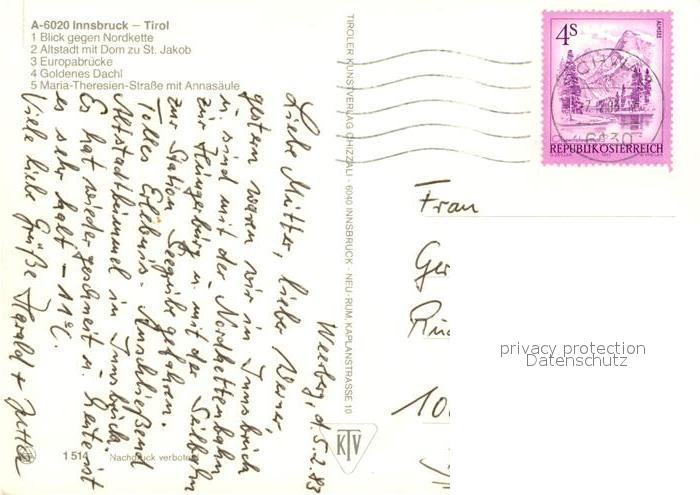 A-6020 Innsbruck – Tirol
1 Blick gegen Nordkette
2 Altstadt mit Dom zu St. Jakob
3 Europabrücke
4 Goldenes Dachl
5 Maria-Theresien-Straße mit Annasäule
Weerberg, d. 5.2.83
Liebe Mutter, lieber Werner,
gestern waren wir in Innsbruck
u. sind mit der Nordkettenbahn
zur Hungerburg u. mit der Seilbahn
zur Station Seegrube gefahren.
Tolles Erlebnis. Anschließend
Altstadtbummel in Innsbruck.
Es hat wieder geschneit u. heute ist
es sehr kalt – 11°C.
Viele liebe Grüße Harald +
TIROLER KUNSTVERLAG CHIZZALI · 6040 INNSBRUCK · NEU-RUM, KAPLANSTRASSE 10
KTV
1 514 Nachdruck verboten
4 S
ALMSEE
REPUBLIK ÖSTERREICH
6130
Frau
Ger
10
privacy protection
Datenschutz